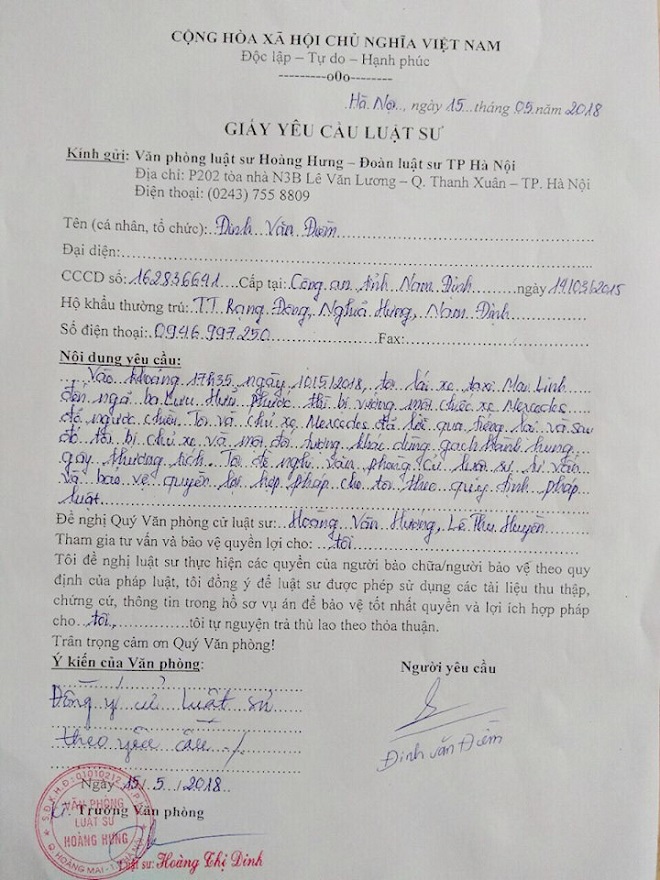 CỘNG HÒA XÃ HỘI CHỦ NGHĨA VIỆT NAM
Độc lập – Tự do – Hạnh phúc
---------o0o--------
Hà Nội, ngày 15 tháng 05 năm 2018
GIẤY YÊU CẦU LUẬT SƯ
Kính gửi: Văn phòng luật sư Hoàng Hưng – Đoàn luật sư TP Hà Nội
Địa chỉ: P202 tòa nhà N3B Lê Văn Lương – Q. Thanh Xuân – TP. Hà Nội
Điện thoại: (0243) 755 8809
Tên (cá nhân, tổ chức): Đinh Văn Điềm
Đại diện:
CCCD số: 162836641 Cấp tại: Công an tỉnh Nam Định ngày 19/03/2015
Hộ khẩu thường trú: TT Rạng Đông, Nghĩa Hưng, Nam Định
Số điện thoại: 0946.997.250 Fax:
Nội dung yêu cầu:
Vào khoảng 17h35, ngày 10/5/2018, tôi lái xe taxi Mai Linh
đến ngã ba Lưu Hữu Phước thì bị vướng một chiếc xe Mercedes
đỗ ngược chiều. Tôi và chủ xe Mercedes đã lời qua tiếng lại và sau
đó tôi bị chủ xe và một đối tượng khác dùng gạch hành hung,
gây thương tích. Tôi đề nghị văn phòng cử luật sư tư vấn
và bảo vệ quyền lợi hợp pháp cho tôi theo quy định pháp
luật
Đề nghị Quý Văn phòng cử luật sư: Hoàng Văn Hướng, Lê Thu Huyền
Tham gia tư vấn và bảo vệ quyền lợi cho: tôi
Tôi đề nghị luật sư thực hiện các quyền của người bảo chữa/người bảo vệ theo quy
định của pháp luật, tôi đồng ý để luật sư được phép sử dụng các tài liệu thu thập,
chứng cứ, thông tin trong hồ sơ vụ án để bảo vệ tốt nhất quyền và lợi ích hợp pháp
cho tôi, tôi tự nguyện trả thù lao theo thỏa thuận.
Trân trọng cảm ơn Quý Văn phòng!
Ý kiến của Văn phòng: Người yêu cầu
Đồng ý cử luật sư
theo yêu cầu /.
Đinh Văn Điềm
Ngày 15/5/2018
Trưởng Văn phòng
VĂN PHÒNG
LUẬT SƯ
HOÀNG HƯNG
Luật sư: Hoàng Thị Dinh